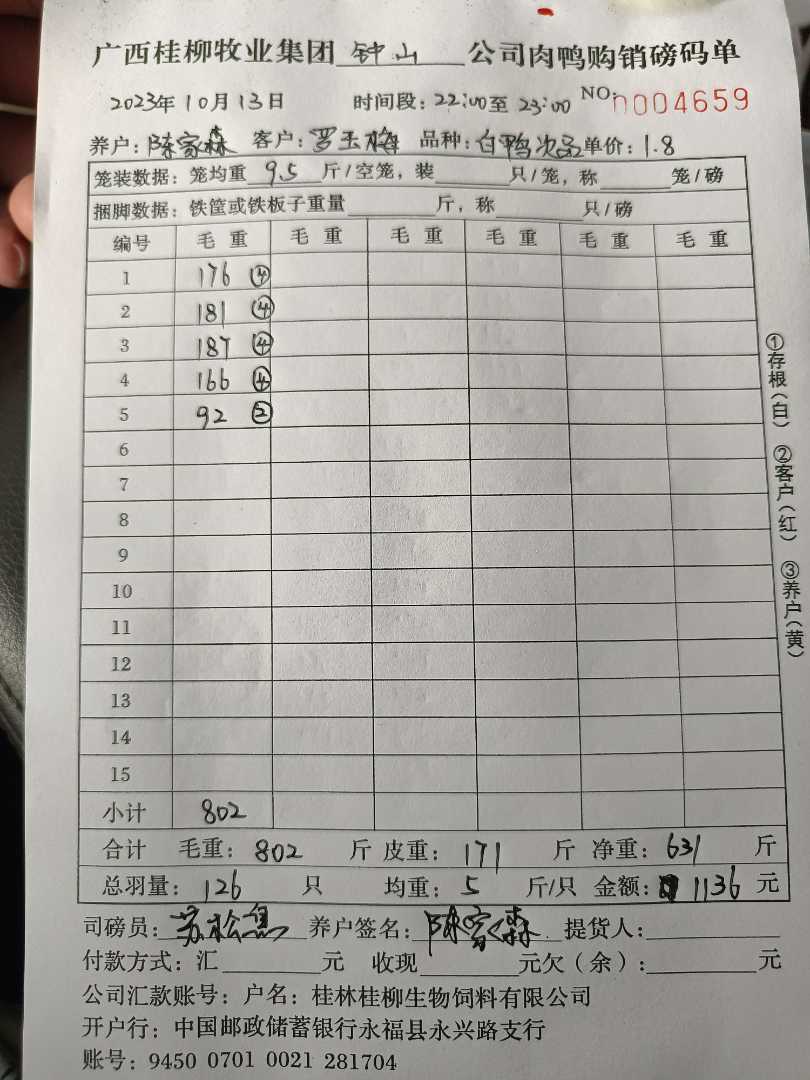 广西桂柳牧业集团 钟山 公司肉鸭购销磅码单
2023年10月13日 时间段：22:00至23:00 NO: 0004659
养户：陈家森 客户：罗玉梅 品种：白鸭次品 单价：1.8
笼装数据：笼均重 9.5 斤/空笼，装 只/笼，称 笼/磅
捆脚数据：铁筐或铁板子重量 斤，称 只/磅
编号 毛重 毛重 毛重 毛重 毛重 毛重
1 176 ④
2 181 ④
3 187 ④
4 166 ④
5 92 ②
6
7
8
9
10
11
12
13
14
15
小计 802
合计 毛重：802 斤 皮重：171 斤 净重：631 斤
总羽量：126 只 均重：5 斤/只 金额：1136 元
司磅员：苏松 养户签名：陈家森 提货人：
付款方式：汇 元 收现 元欠（余）： 元
公司汇款账号：户名：桂林桂柳生物饲料有限公司
开户行：中国邮政储蓄银行永福县永兴路支行
账号：9450 0701 0021 281704
①存根（白） ②客户（红） ③养户（黄）